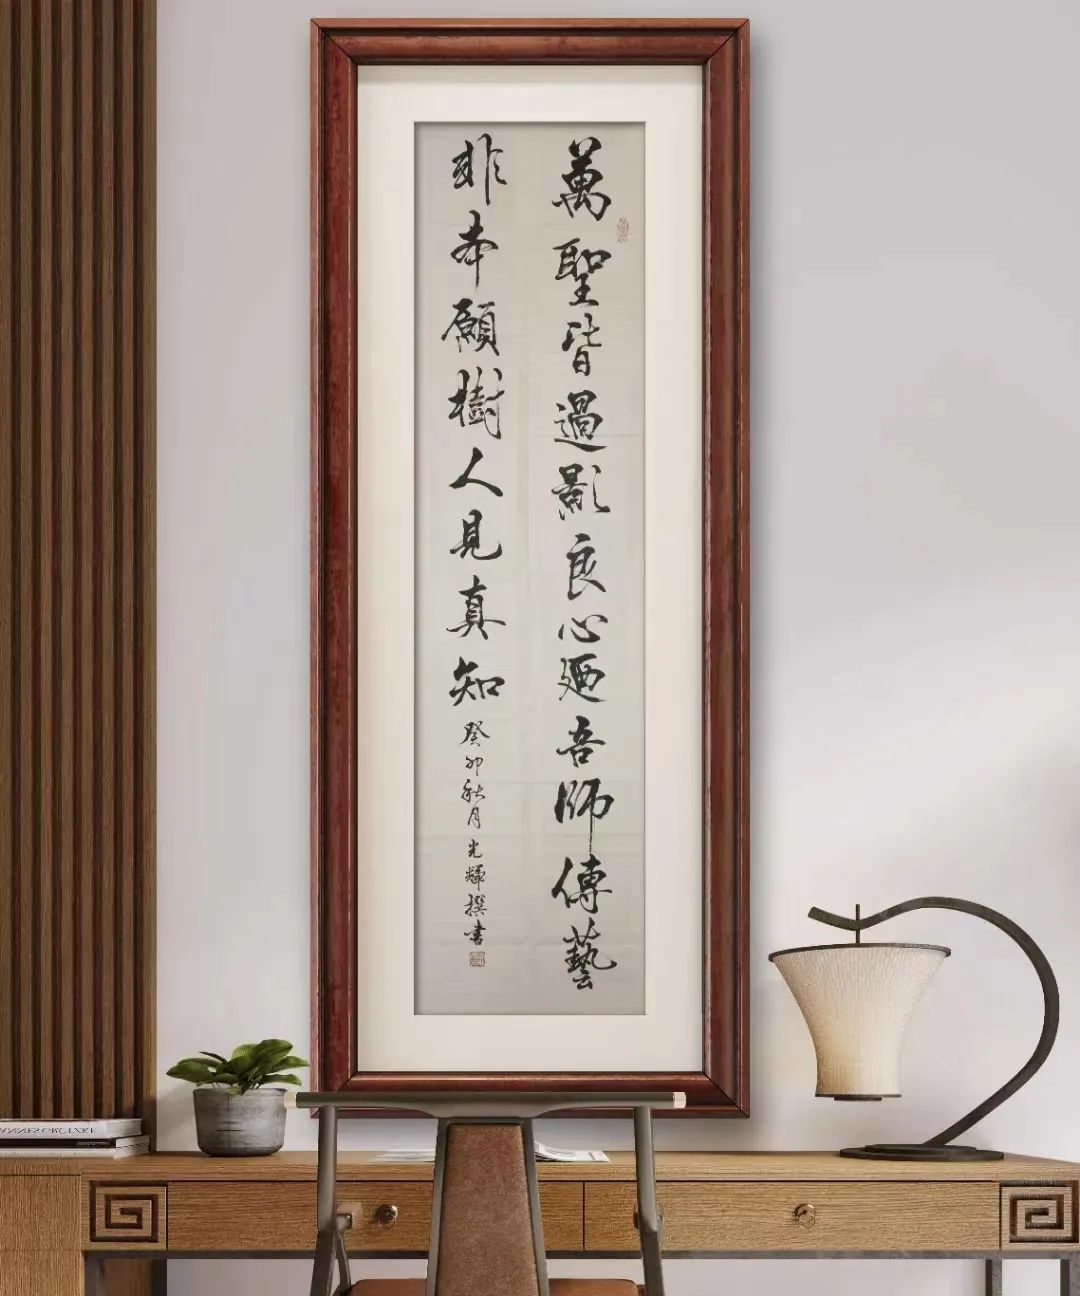 萬聖皆過影良心廼吾師傳藝
非本願樹人見真知癸卯秋月光輝撰書